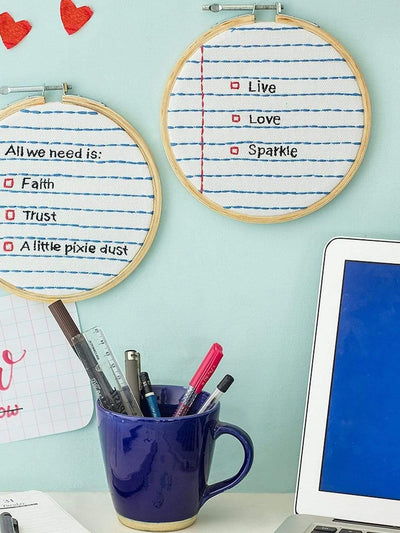 Live
Love
Sparkle
All we need is:
Faith
Trust
A little pixie dust
31